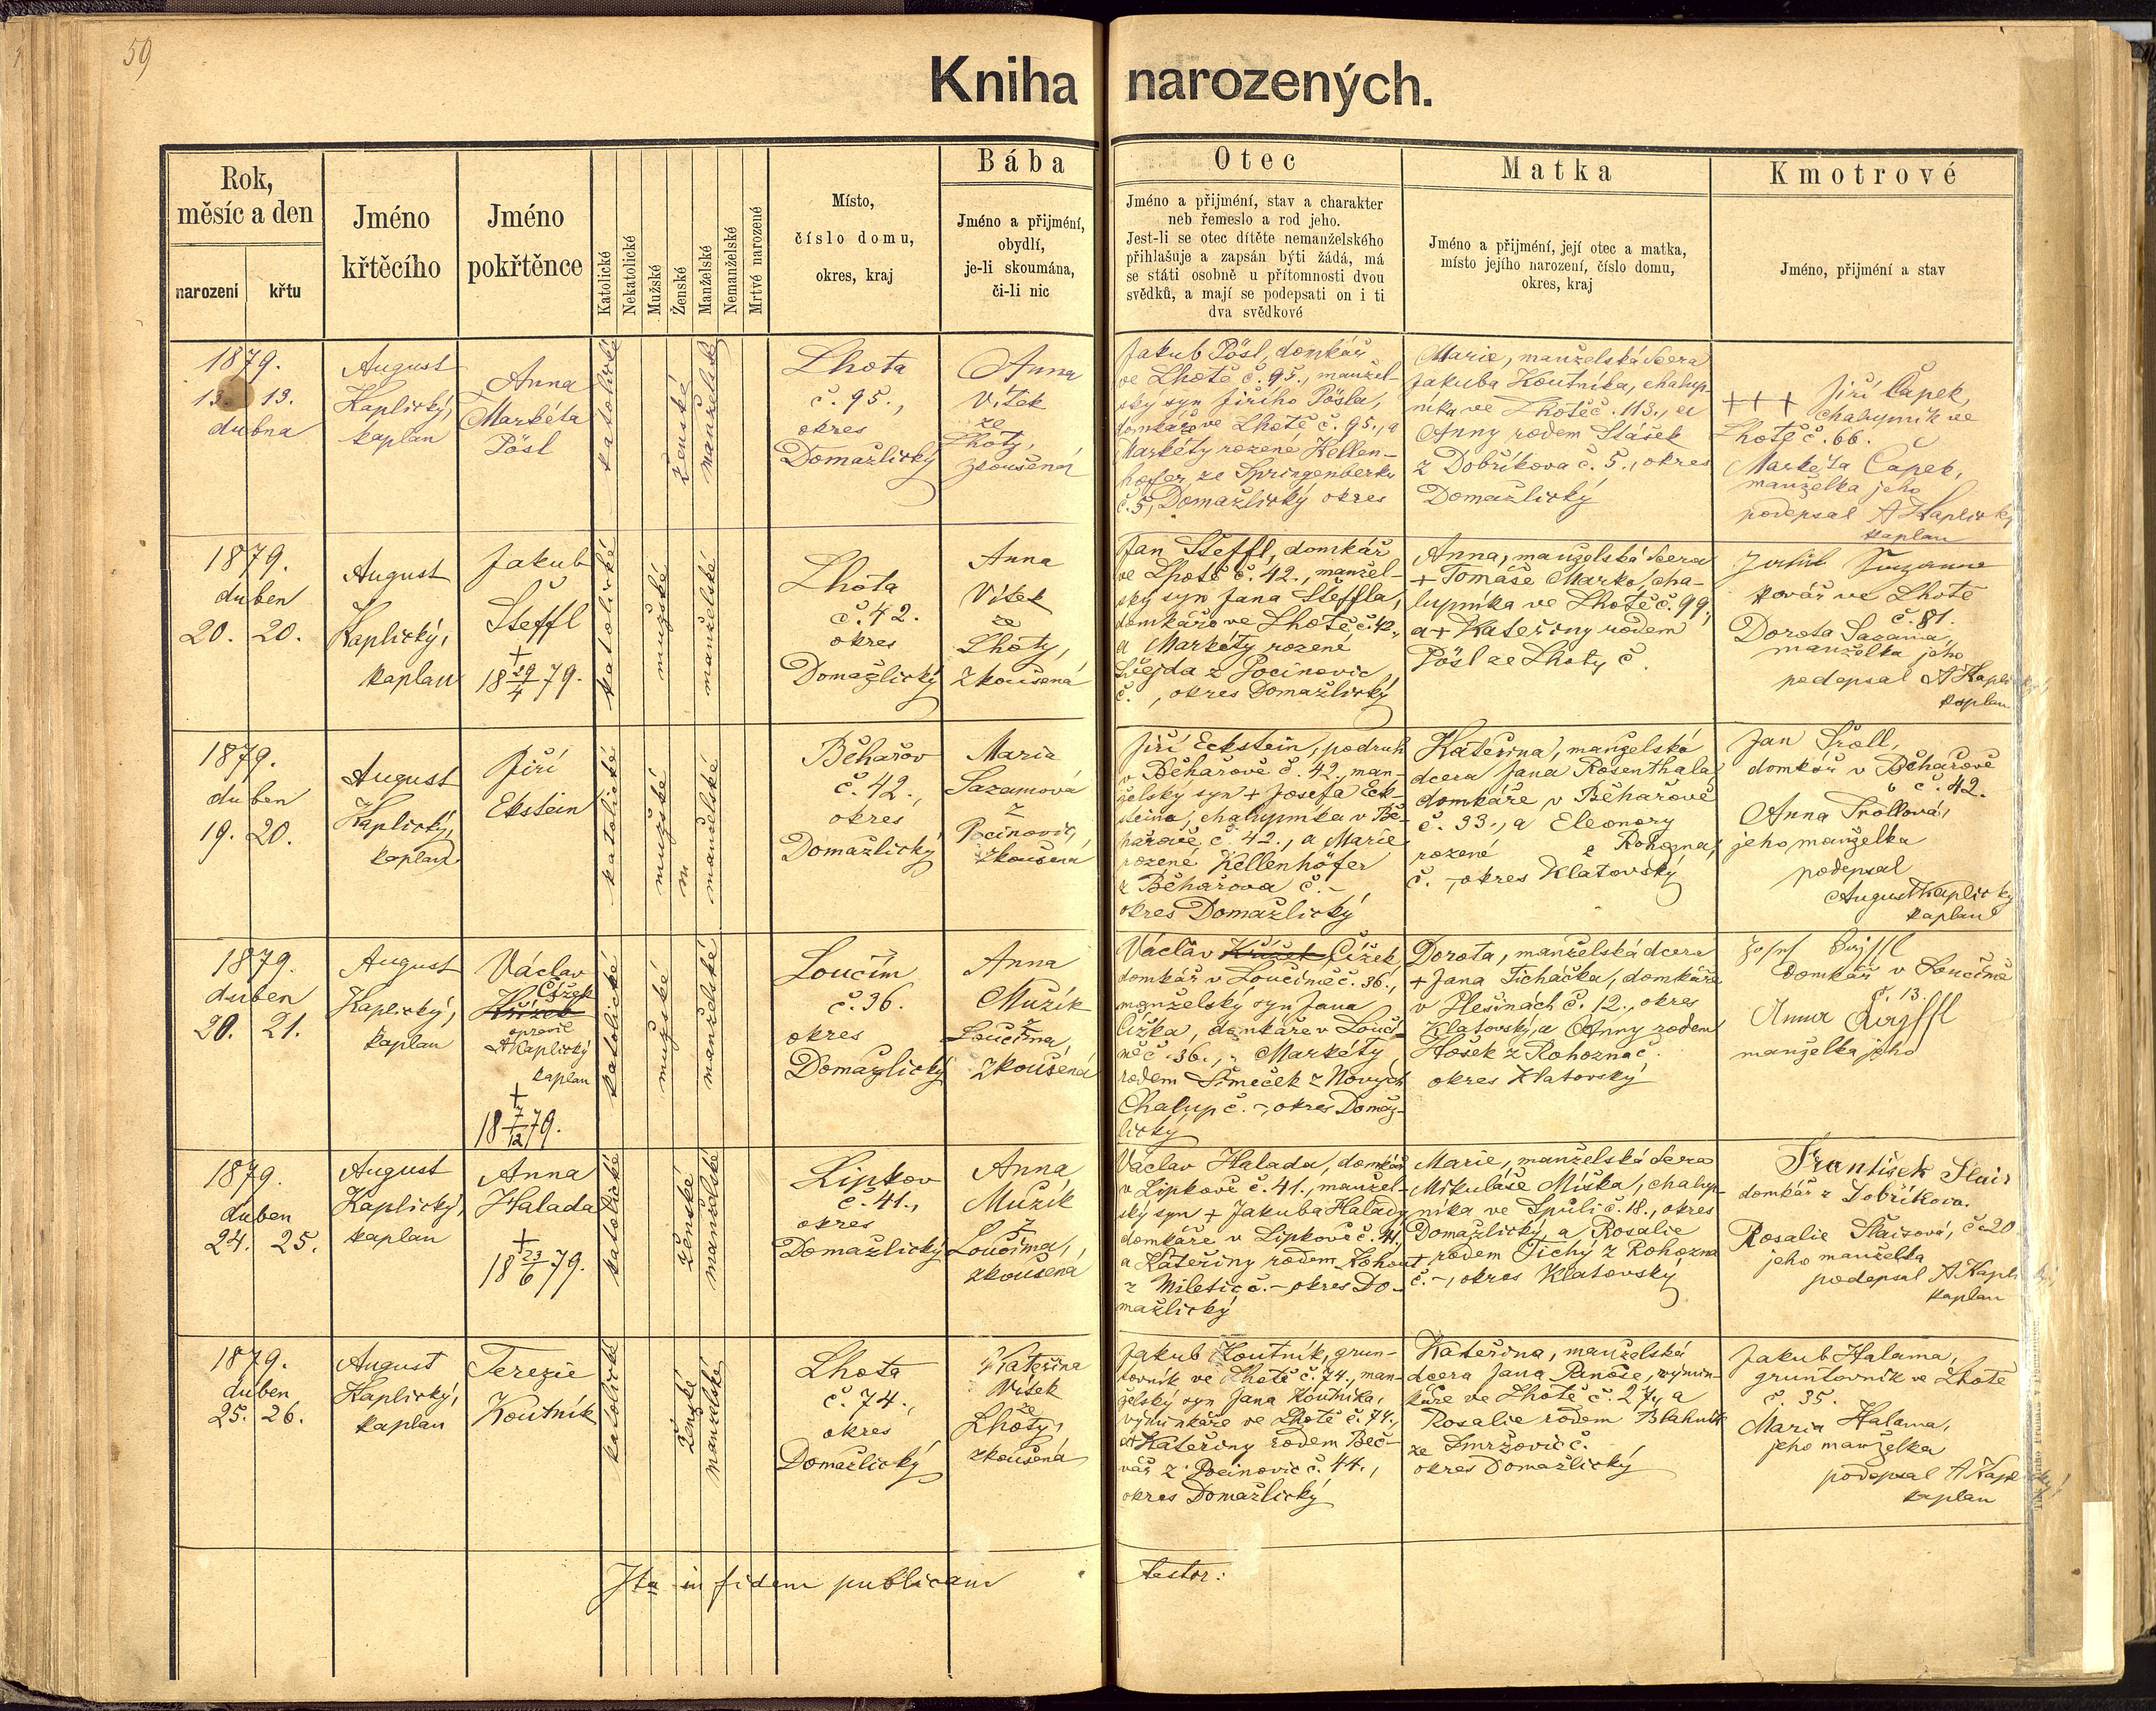 59
Kniha narozených.
Rok,
měsíc a den
narození
křtu
Jméno
křtěcího
Jméno
pokřtěnce
Katolické
Nekatolické
Mužské
Ženské
Manželské
Nemanželské
Mrtvé narozené
Místo,
číslo domu,
okres, kraj
Bába
Jméno a přijmění,
obydlí,
je-li skoumána,
či-li nic
Otec
Jméno a přijmění, stav a charakter
neb řemeslo a rod jeho.
Jest-li se otec dítěte nemanželského
přihlašuje a zapsán býti žádá, má
se státi osobně u přítomnosti dvou
svědků, a mají se podepsati on i ti
dva svědkové
Matka
Jméno a přijmění, její otec a matka,
místo jejího narození, číslo domu,
okres, kraj
Kmotrové
Jméno, přijmění a stav
1879.
13. 13.
dubna
August
Kaplický,
kaplan
Anna
Markéta
Pösl
katolické
ženské
manželské
Lhota
č. 95.,
okres
Domažlický
Anna
Vítek
ze
Lhoty,
zkoušená
Jakub Pösl, domkář
ve Lhotě č. 95., manžel-
ský syn Jiřího Pösla,
domkáře ve Lhotě č. 95., a
Markéty rozené Kellen-
hofer ze Springenberku
č. 5, Domažlický okres
Marie, manželská dcera
Jakuba Koutníka, chalup-
níka ve Lhotě č. 113., a
Anny rodem Stášek
z Dobříkova č. 5., okres
Domažlický
+++ Jiří Čapek,
chalupník ve
Lhotě č. 66.
Markéta Čapek,
manželka jeho
podepsal A Kaplický
kaplan
1879.
duben
20. 20.
August
Kaplický,
kaplan
Jakub
Šteffl
+
18 29/4 79.
katolické
mužské
manželské
Lhota
č. 42.
okres
Domažlický
Anna
Vítek
ze
Lhoty,
zkoušená
Jan Šteffl, domkář
ve Lhotě č. 42., manžel-
ský syn Jana Šteffla,
domkáře ve Lhotě č. 42.,
a Markéty rozené
z Pocinovic
č. , okres Domažlický
Anna, manželská dcera
+ Tomáše Marka, cha-
lupníka ve Lhotě č. 99.,
a + Kateřiny rodem
Pösl ze Lhoty č.
kovář ve Lhotě
č. 81.
Dorota Sazama,
manželka jeho
podepsal A Kaplický
kaplan
1879.
duben
19. 20.
August
Kaplický,
kaplan
Jiří
Ekstein
katolické
mužské
m
manželské
Běhařov
č. 42.,
okres
Domažlický
Marie
Sazamová
z
Pocinovic,
zkoušená
Jiří Eckstein, podruh
v Běhařově č. 42., man-
želský syn + Josefa Eck-
steina, chalupníka v Bě-
hařově č. 42., a Marie
rozené Kellenhöfer
z Běhařova č. -,
okres Domažlický
Kateřina, manželská
dcera Jana Rosenthala,
domkáře v Běhařově
č. 33., a Eleonory
rozené z Rohozna,
č. -, okres Klatovský
Jan Troll,
domkář v Běhařově
č. 42.
Anna Trollová,
jeho manželka
podepsal
August Kaplický
kaplan
1879.
duben
20. 21.
August
Kaplický,
kaplan
Václav
Čížek
Křížek
opravil
A Kaplický
kaplan
+
18 7/12 79.
katolické
mužské
manželské
Loučim
č. 36.
okres
Domažlický
Anna
Mužík
z
Loučima,
zkoušená
Václav Křížek Čížek
domkář v Loučimě č. 36.,
manželský syn Jana
Čížka, domkáře v Louči-
mě č. 36., a Markéty
rodem Šimeček z Nových
Chalup č. -, okres Domaž-
lický
Dorota, manželská dcera
+ Jana Ticháčka, domkáře
v Plešinách č. 12., okres
Klatovský, a Anny rodem
Hošek z Rohozna č.
okres Klatovský
domkář v Loučimě
č. 13.
manželka jeho
1879.
duben
24. 25.
August
Kaplický,
kaplan
Anna
Halada
+
18 23/6 79.
katolické
ženské
manželské
Lipkov
č. 41.,
okres
Domažlický
Anna
Mužík
z
Loučima,
zkoušená
Václav Halada, domkář
v Lipkově č. 41., manžel-
ský syn + Jakuba Halady
domkáře v Lipkově č. 41,
a Kateřiny rodem Kohout
z Miletic č. - okres Do-
mažlický
Marie, manželská dcera
Mikuláše Míška, chalup-
níka ve Spůli č. 18., okres
Domažlický a Rosalie
+ rodem Tichý z Rohozna
č. -, okres Klatovský
František
domkář z Dobříkova.
Rosalie č. 20
jeho manželka
podepsal A Kaplický
kaplan
1879.
duben
25. 26.
August
Kaplický,
kaplan
Terezie
Koutník
katolické
ženské
manželské
Lhota
č. 74.,
okres
Domažlický
Kateřina
Vítek
ze
Lhoty,
zkoušená
Jakub Koutník, grun-
tovník ve Lhotě č. 74., man-
želský syn Jana Koutníka,
výminkáře ve Lhotě č. 74.,
a Kateřiny rodem Beč-
vář z Pocinovic č. 44.,
okres Domažlický
Kateřina, manželská
dcera Jana Panoše, výmin-
káře ve Lhotě č. 27., a
Rosalie rodem Blahník
ze Smržovic č.
okres Domažlický
Jakub Halama,
gruntovník ve Lhotě
č. 35.
Marie Halama,
jeho manželka
podepsal A Kaplický
kaplan
Ita in fidem publicam testor: